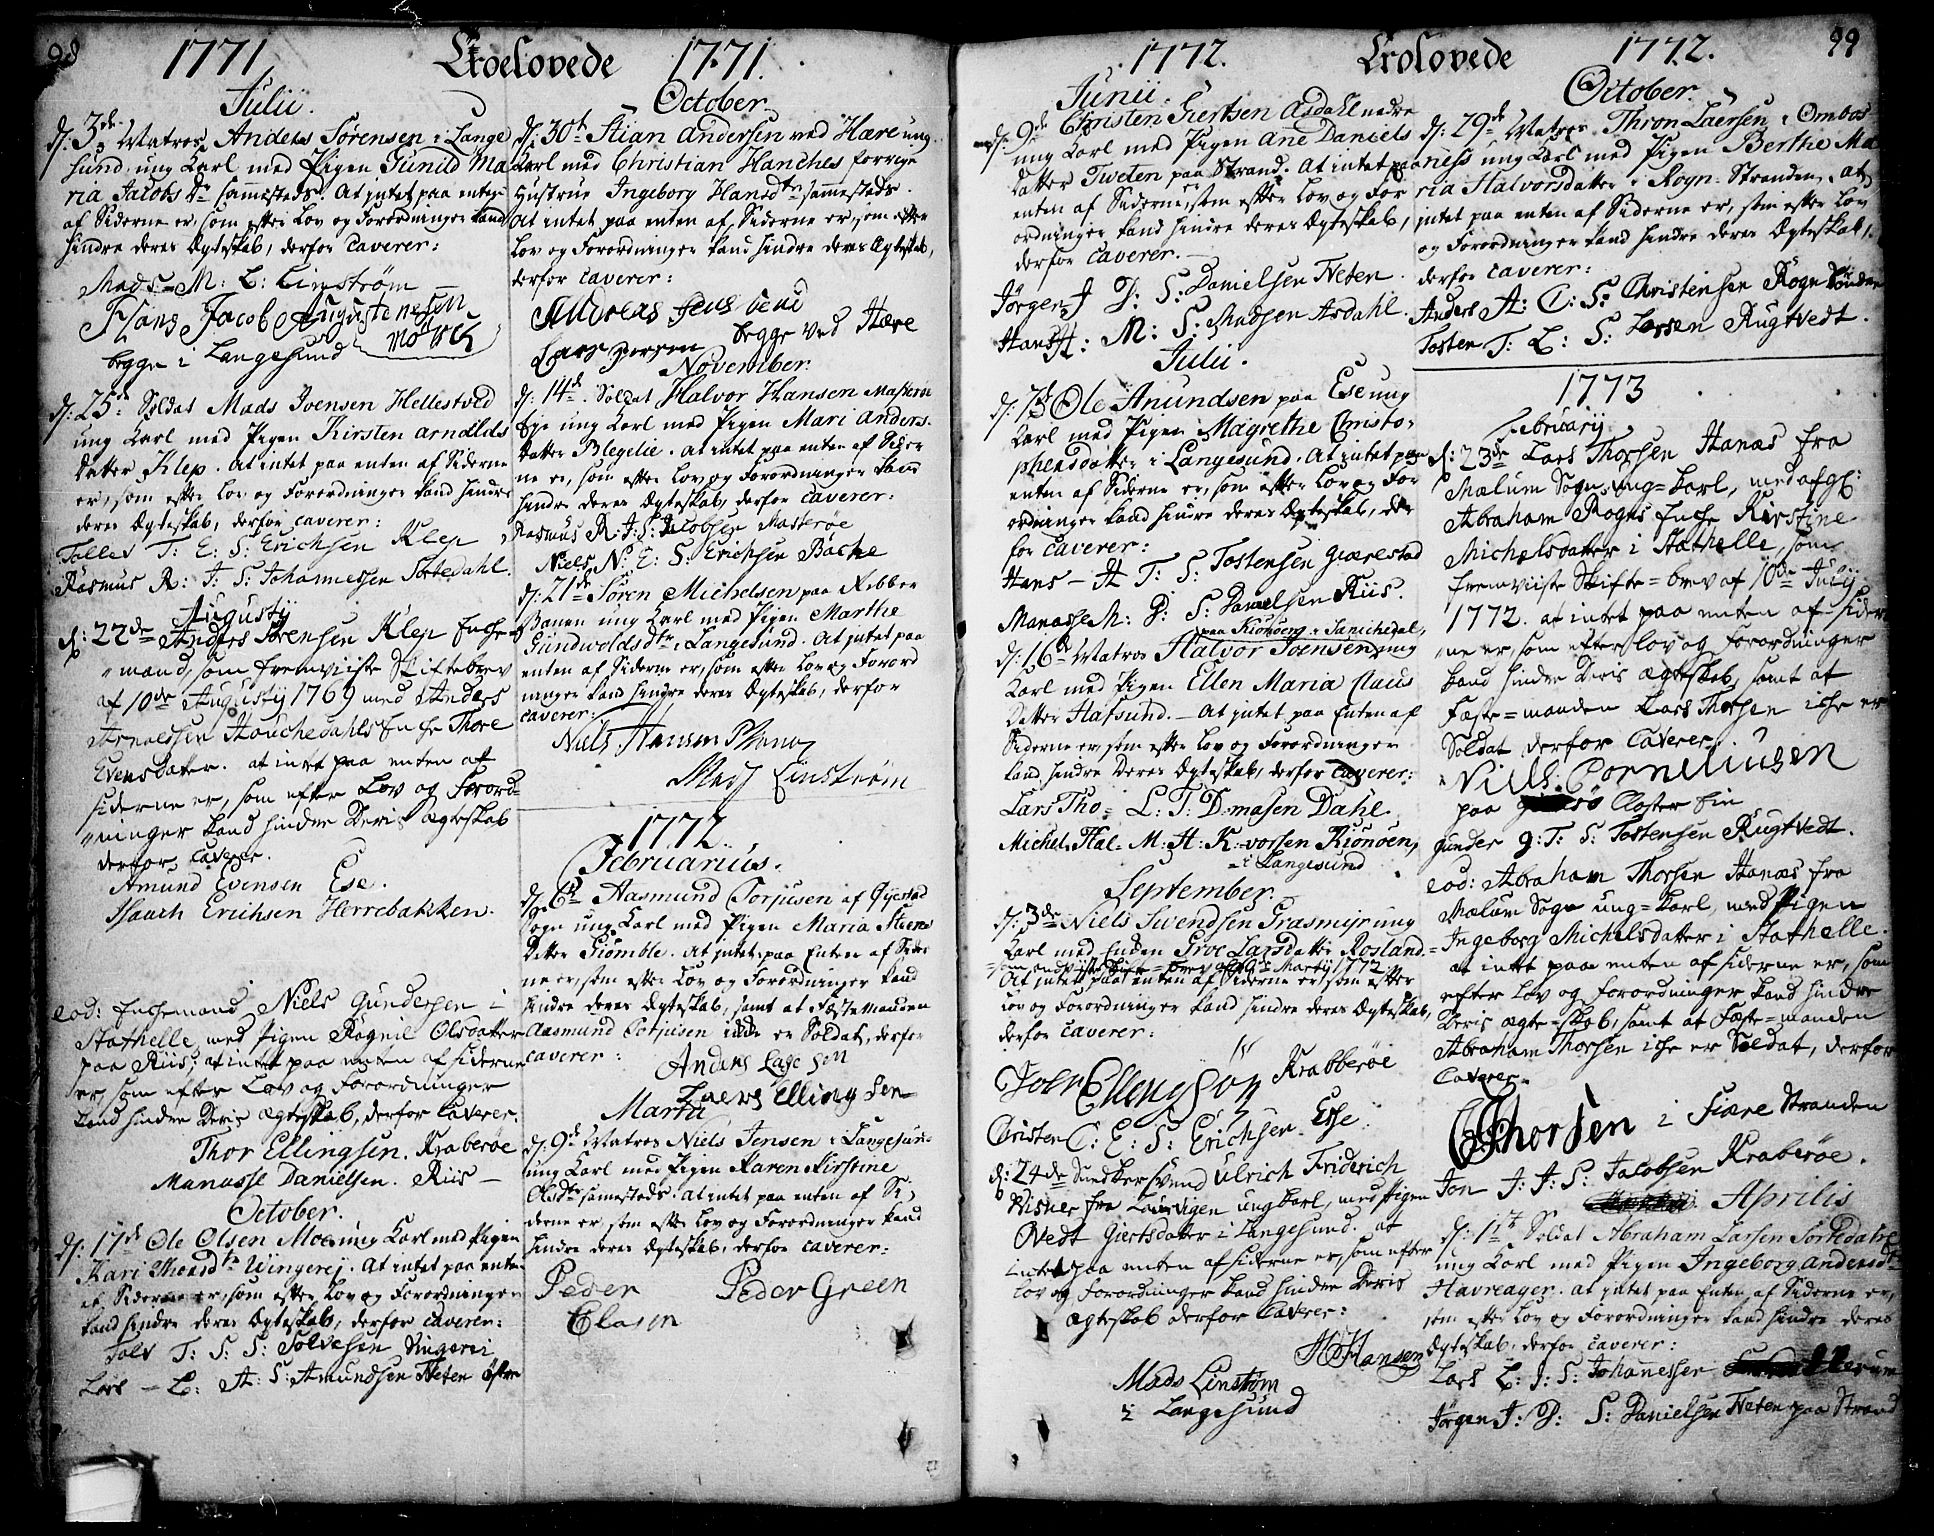 98
1771 Troelovede 1771.
Julii.
d: 3de Matros Anders Sörensen i Lange
sund, ung Karl med Pigen Gunild Ma
ria Jacobs Dr sammesteds. At intet paa enten
af Siderne er, som efter Lov og Forordninger kand
hindre deres Ægteskab, derfor caverer:
Mads = M: L: Linström
Hans Jacob Augustinesen
Mörch
begge i Langesund
d: 25de Soldat Mads Joensen Hellestved
ung Karl med Pigen Kirsten Arnolds
datter Klep. At intet paa enten af Siderne
er, som efter Lov og Forordninger kand hindre
deres Ægteskab, derfor caverer:
Tollef T: E: S: Erichsen Klep
Rasmus R: J: S: Johannessen Sortedahl.
Augustij
d: 22de Anders Sörensen Klep Enche=
mand, som fremviiste Skiftebrev
af 10de Augustij 1769 med Anders
Arnoldsen Hauchedahls Enche Thore
Evensdater. at intet paa enten af
siderne er, som efter Lov og Forord=
ninger kand hindre Deris ægteskab
derfor caverer.
Amund Evensen Ese.
Isaach Erichsen Herrebakken.
eod: Enchemand Niels Gundersen i
Stathelle, med Pigen Ragnil Olsdatter
paa Riis; at intet paa enten af siderne
er, som efter Lov og Forordninger
kand hindre Deris ægteskab, derfor Caverer.
Thor Ellingsen. Kraberöe
Manasse Danielsen. Riis
October.
d: 17de Ole Olsen Moe ung Karl med Pigen
Kari Thoresdtr Wingerej. At intet paa enten
af Siderne er, som efter Lov og Forordninger
kand hindre deres Ægteskab, derfor caverer:
Tolv T: S: S: Solvesen Vingerei
Lars — L: A: S: Amundsen Tveten Östre
October
d: 30te Stian Andersen ved Hære ung
Karl med Christian Hanches forrige
Hustrue Ingeborg Hansdtr sammesteds.
At intet paa enten af Siderne er, som efter
Lov og Forordninger kand hindre deres Ægteskab,
derfor caverer:
Andreas Jens
begge ved Hære
November.
d: 14de Soldat Halvor Hansen
Eje ung Karl med Pigen Mari Anders
datter Blegelie. At intet paa enten af Sider
ne er, som efter Lov og Forordninger kand
hindre deres Ægteskab, derfor caverer:
Rasmus R. J: S: Jacobsen
Niels N: E: S: Erichsen Bache
d: 21de Sören Michelsen paa Ribber
Banen ung Karl med Pigen Marthe
Gundwoldsdtr i Langesund. At intet paa
enten af Siderne er, som efter Lov og Forord
ninger kand hindre deres Ægteskab, derfor
caverer:
Niels Hansen
Mads Linström
1772.
Februarius.
d: 6te Aasmund Torjusen af Öjestad
Sogn ung Karl med Pigen Maria
Datter Giömble. At intet paa Enten af Sider
ne er, som efter Lov og Forordninger kand
hindre deres Ægteskab, samt at Fæste Manden
Aasmund Torjusen icke er Soldat, derfor
caverer:
Anders
Laers Elling sen
Martii
d: 9de Matros Niels Jensen i Langesund
ung Karl med Pigen Karen Kirstine
Olsdtr sammesteds. At intet paa enten af Si,
derne er, som efter Lov og Forordninger kand
hindre deres Ægteskab, derfor caverer:
Peder Peder Green
Elasen
1772. Trolovede 1772. 99
Junii.
d: 9de Christen Giertsen Asdahl nedre
ung Karl med Pigen Ane Daniels
datter Tweten paa Strand. At intet paa
enten af Siderne er, som efter Lov og For
ordninger kand hindre deres Ægteskab,
derfor caverer.
Jörgen J D: S: Danielsen Tveten.
Hans H: M: S: Madsen Asdahl.
Julii.
d: 13de Ole Anundsen paa Ese ung
Karl med Pigen Magrethe Christo,
phersdatter i Langesund. At intet paa
enten af Siderne er, som efter Lov og For
ordninger kand hindre deres Ægteskab, der
for caverer:
Hans — H T: S: Tostensen Giærestad
Manasse M: D: S: Danielsen Riis.
paa Kiönöen i
d: 16de Matros Halvor Joensen, ung
Karl med Pigen Ellen Maria Claus
Datter Hafsund. — At intet paa Enten af
Siderne er, som efter Lov og Forordninger
kand hindre Deres Ægteskab, derfor caverer:
Lars Tho= L: T: D=masen Dahl.
Michel Hal= M: H: K=vorsen Kiönöen,
= i Langesund
September.
d: 3de Niels Swendsen Grasmyr ung
Karl med Enken Groe Larsdatter Rosland=
At intet paa enten af Siderne er, som efter
Lov og Forordninger kand hindre deres Ægteskab,
derfor caverer:
Joen Ellengson Krabberöe
Christen C: E: S: Erichsen Ese.
d: 24de Snedkersvend Ulrich Friderich
Wisner fra Laurvigen ung karl, med Pigen
Vedt Giertsdatter i Langesund. at
intet paa enten af siderne er, som efter
Lov og Forordninger kand hindre Deris
ægteskab derfor Caverer:
H Hansen
Mads Linström
i Langesund
October.
d: 29de Matros Thron Laersen i Omboes
næss ung Karl med Pigen Berthe Ma
ria Halvorsdatter i Rogn=Stranden, at
intet paa enten af Siderne er, som efter Lov
og Forordninger kand hindre deres Ægteskab,
derfor caverer:
Anders A: C: S: Christensen Rogn
Tosten T: L: S: Larsen Rugtvedt.
1773
Februarij
d: 23de Lars Thorsen Hanæs fra
Mælum Sogn, ung=karl, med afg:
Abraham Rognes Enche Kirstine
Michelsdater i Stathelle, som
fremviiste Skifte=brev af 10de Julij
1772. at intet paa enten af sider
ne er, som efter lov og forordninger
kand hindre Deris ægteskab, samt at
Fæste=manden Lars Thorsen iche er
Soldat derfor Caverer.
Niels Corneliusen
paa Closter
Gunder G: T: S: Tostensen Rugtvedt.
eod: Abraham Thorsen Hanæs fra
Mælum Sogn ung=karl, med Pigen
Ingeborg Michelsdatter i Stathelle.
at intet paa enten af siderne er, som
efter Lov og forordninger kand hindre
Deris ægte=skab, samt at Fæste=manden
Abraham Thorsen iche er Soldat, derfor
Caverer.
Thorsen i Fiære Stranden
Jon J: J: S: Jacobsen Kraberöe.
Aprilis
d: 1te Soldat Abraham Larsen Sortedahl
ung Karl med Pigen Ingeborg Andersdtr
Havreager. At intet paa Enten af Siderne er,
som efter Lov og Forordninger kand hindre deres
Ægteskab, derfor caverer:
Lars L: J: S: Johanessen
Jörgen J: D: S: Danielsen Tveten paa Strand